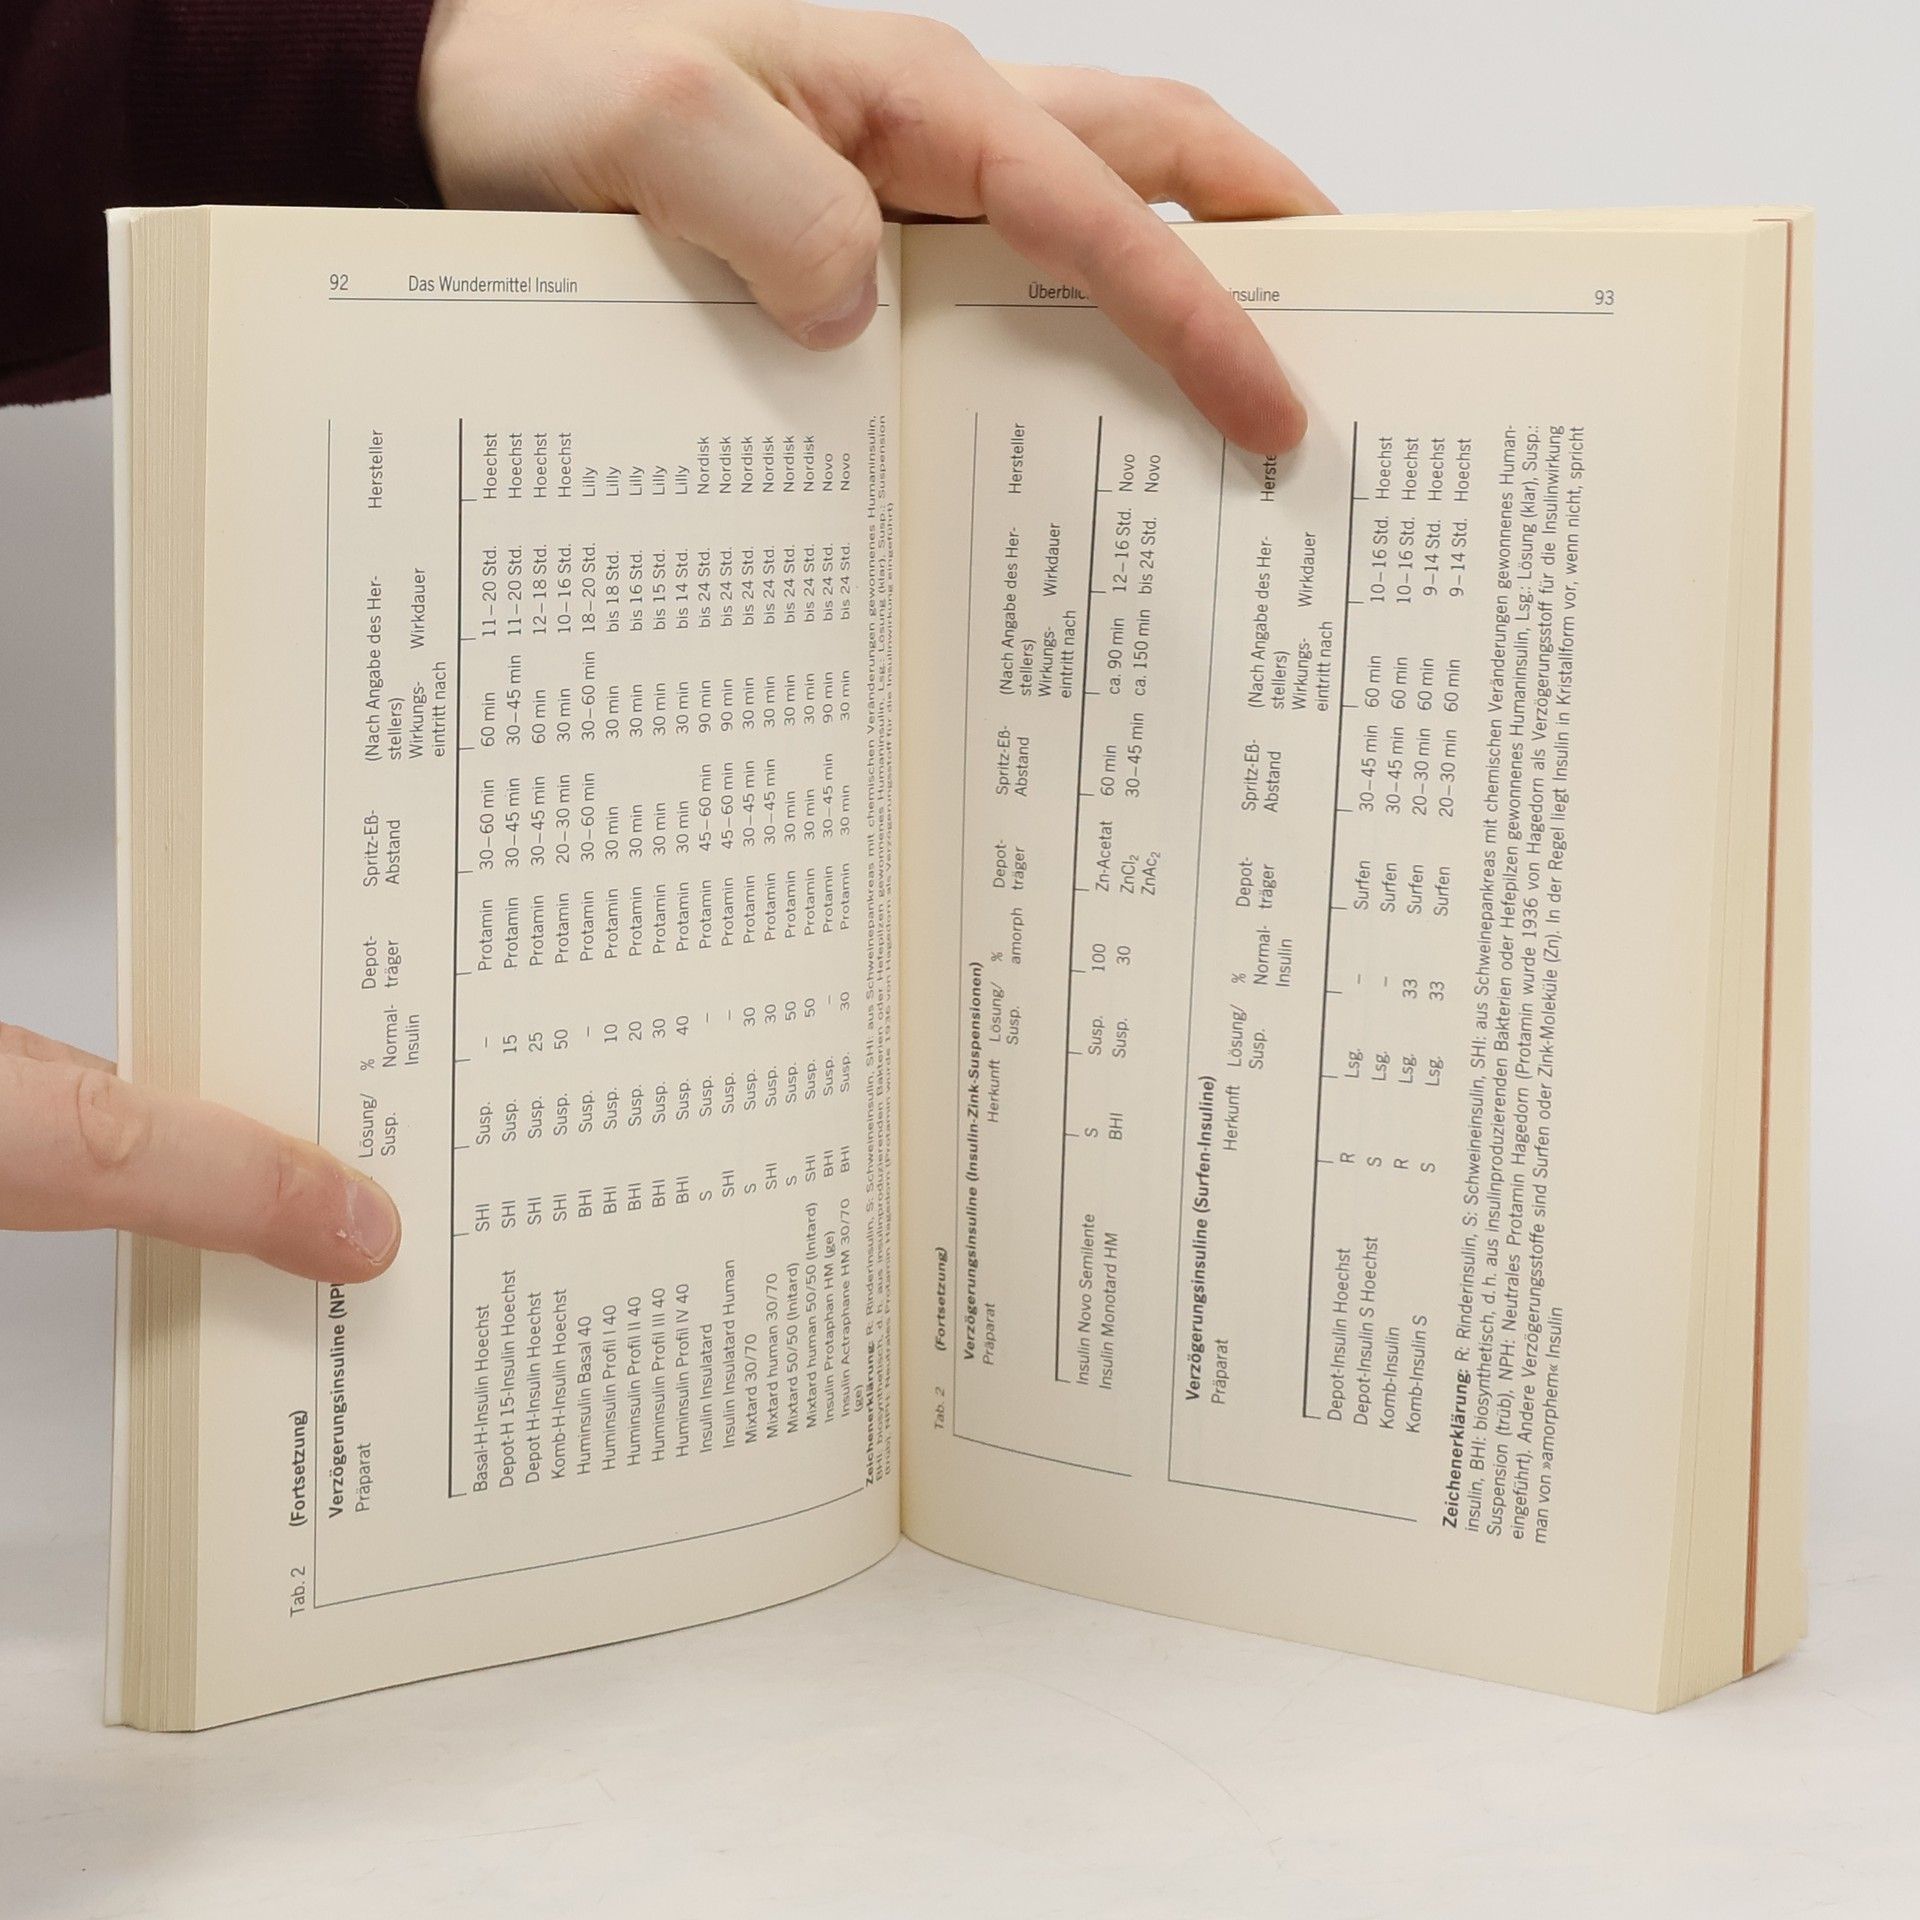 92 Das Wundermittel Insulin
Tab. 2 (Fortsetzung)
Verzögerungsinsuline
Präparat Lösung/ Susp. % Normal- Insulin Depot- träger Spritz-Eß- Abstand (Nach Angabe des Her- stellers) Wirkungs- eintritt nach Wirkdauer Hersteller
Basal-H-Insulin Hoechst SHI Susp. – Protamin 30–60 min 60 min 11–20 Std. Hoechst
Depot-H 15-Insulin Hoechst SHI Susp. 15 Protamin 30–45 min 30–45 min 11–20 Std. Hoechst
Depot H-Insulin Hoechst SHI Susp. 25 Protamin 30–45 min 60 min 12–18 Std. Hoechst
Komb-H-Insulin Hoechst SHI Susp. 50 Protamin 20–30 min 30 min 10–16 Std. Hoechst
Huminsulin Basal 40 BHI Susp. – Protamin 30–60 min 30–60 min 18–20 Std. Lilly
Huminsulin Profil I 40 BHI Susp. 10 Protamin 30 min 30 min bis 18 Std. Lilly
Huminsulin Profil II 40 BHI Susp. 20 Protamin 30 min 30 min bis 16 Std. Lilly
Huminsulin Profil III 40 BHI Susp. 30 Protamin 30 min 30 min bis 15 Std. Lilly
Huminsulin Profil IV 40 BHI Susp. 40 Protamin 30 min 30 min bis 14 Std. Lilly
Insulin Insulatard S Susp. – Protamin 45–60 min 90 min bis 24 Std. Nordisk
Insulin Insulatard Human SHI Susp. – Protamin 45–60 min 90 min bis 24 Std. Nordisk
Mixtard 30/70 S Susp. 30 Protamin 30–45 min 30 min bis 24 Std. Nordisk
Mixtard human 30/70 SHI Susp. 30 Protamin 30–45 min 30 min bis 24 Std. Nordisk
Mixtard 50/50 (Initard) S Susp. 50 Protamin 30 min 30 min bis 24 Std. Nordisk
Mixtard human 50/50 (Initard) SHI Susp. 50 Protamin 30 min 30 min bis 24 Std. Nordisk
Insulin Protaphan HM (ge) BHI Susp. – Protamin 30–45 min 90 min bis 24 Std. Novo
Insulin Actraphane HM 30/70 BHI Susp. 30 Protamin 30 min 30 min bis 24 Std. Novo
(ge)
Zeichenerklärung: R: Rinderinsulin, S: Schweineinsulin, SHI: aus Schweinepankreas mit chemischen Veränderungen gewonnenes Humaninsulin,
BHI: biosynthetisch, d. h. aus insulinproduzierenden Bakterien oder Hefepilzen gewonnenes Humaninsulin, Lsg.: Lösung (klar), Susp.: Suspension
(trüb), NPH: Neutrales Protamin Hagedorn (Protamin wurde 1936 von Hagedorn als Verzögerungsstoff für die Insulinwirkung eingeführt)
93
Tab. 2 (Fortsetzung)
Verzögerungsinsuline (Insulin-Zink-Suspensionen)
Präparat Herkunft Lösung/ Susp. % amorph Depot- träger Spritz-Eß- Abstand (Nach Angabe des Her- stellers) Wirkungs- eintritt nach Wirkdauer Hersteller
Insulin Novo Semilente S Susp. 100 Zn-Acetat 60 min ca. 90 min 12–16 Std. Novo
Insulin Monotard HM BHI Susp. 30 ZnCl₂ 30–45 min ca. 150 min bis 24 Std. Novo
ZnAc₂
Verzögerungsinsuline (Surfen-Insuline)
Präparat Herkunft Lösung/ Susp. % Normal- Insulin Depot- träger Spritz-Eß- Abstand (Nach Angabe des Her- stellers) Wirkungs- eintritt nach Wirkdauer
Depot-Insulin Hoechst R Lsg. – Surfen 30–45 min 60 min 10–16 Std. Hoechst
Depot-Insulin S Hoechst S Lsg. – Surfen 30–45 min 60 min 10–16 Std. Hoechst
Komb-Insulin R Lsg. 33 Surfen 20–30 min 60 min 9–14 Std. Hoechst
Komb-Insulin S S Lsg. 33 Surfen 20–30 min 60 min 9–14 Std. Hoechst
Zeichenerklärung: R: Rinderinsulin, S: Schweineinsulin, SHI: aus Schweinepankreas mit chemischen Veränderungen gewonnenes Human-
insulin, BHI: biosynthetisch, d. h. aus insulinproduzierenden Bakterien oder Hefepilzen gewonnenes Humaninsulin, Lsg.: Lösung (klar), Susp.:
Suspension (trüb), NPH: Neutrales Protamin Hagedorn (Protamin wurde 1936 von Hagedorn als Verzögerungsstoff für die Insulinwirkung
eingeführt). Andere Verzögerungsstoffe sind Surfen oder Zink-Moleküle (Zn). In der Regel liegt Insulin in Kristallform vor, wenn nicht, spricht
man von »amorphem« Insulin